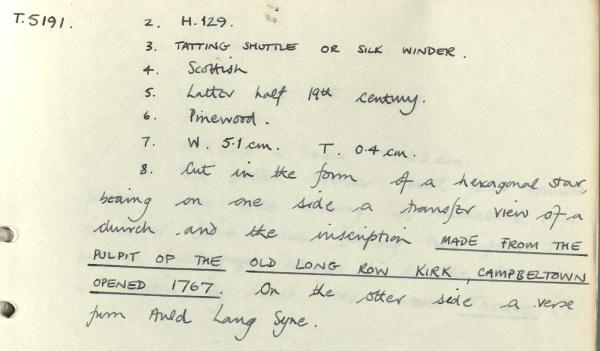 T.5191. 2. H.129.
3. TATTING SHUTTLE OR SILK WINDER.
4. Scottish
5. Latter half 19th century.
6. Pinewood.
7. W. 5.1 cm. T. 0.4 cm.
8. Cut in the form of a hexagonal star,
bearing on one side a transfer view of a
church and the inscription MADE FROM THE
PULPIT OF THE OLD LONG ROW KIRK, CAMPBELTOWN
OPENED 1767. On the other side a verse
from Auld Lang Syne.